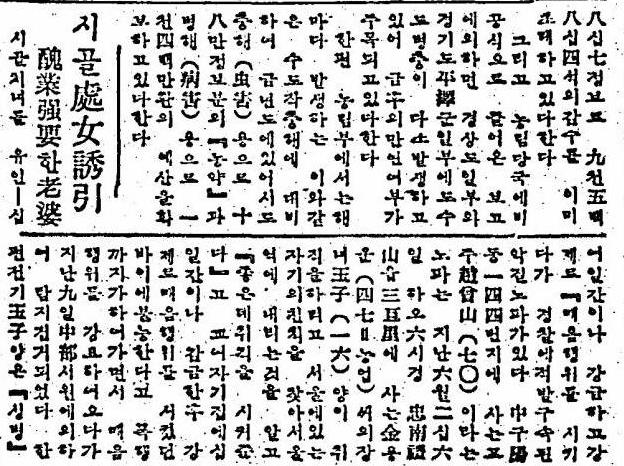 八십七정보로 九천五백
八십四석의감수를 이미
초래하고있다한다
그리고 농림당국에비
공식으로 들어온 보고
에의하면 경상도일부와
경기도平澤군일부에도수
도병충이 다소발생하고
있어 금후의만연여부가
주목되고있다한다
한편 농림부에서는해
마다 발생하는 이와같
은 수도작충해에 대비
하여 금년도에있어서도
충해(虫害)용으로 十
八만정보분의『농약』과
병해(病害)용으로 一
천四백만원의 예산을확
보하고있다한다
시골處女誘引
醜業强要한老婆
시골처녀를 유인—십
여일간이나 감금하고강
제로『매음행위를 시키
다가 경찰에적발구속된
악질노파가있다 中구陽
동一四四번지에 사는고
주趙曾山(七○)이라는
노파는 지난六월二십六
일 하오六시경 忠南禮
山읍 사는金용
운(四七=농업)씨의장
녀玉子(一六)양이 취
직을하려고 서울에있는
자기의친척을 찾아서울
역에 내리는것을 알고
『좋은데취직을 시켜준
다』고 꼬여자기집에십
일간이나 감금한후 강
제로매음행위를 시켰던
바이에불응한다고 폭행
까지가하여가면서 매음
행위를 강요하여오다가
지난九일中部서원에의하
여 탐지검거되었다 한
편전기玉子양은『성병』